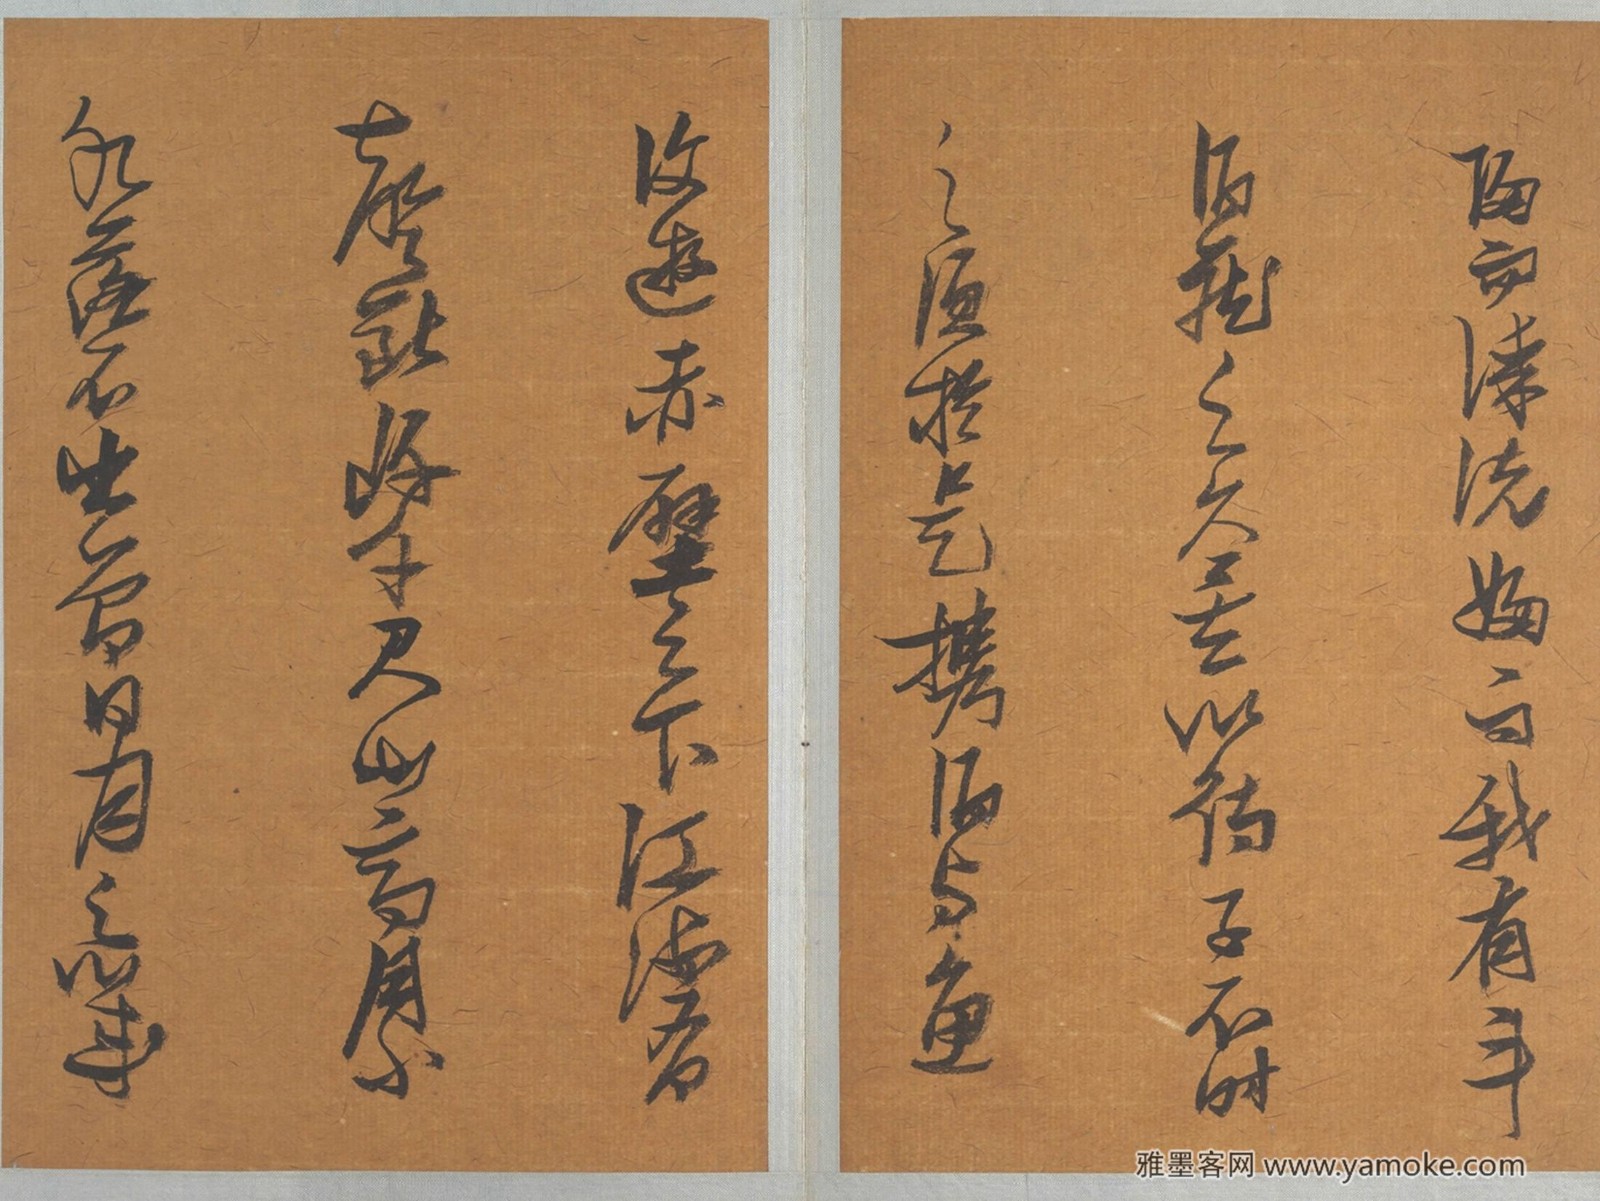 歸而謀諸婦曰我有斗
酒藏之久矣以待子不時
之須於是攜酒與魚
復遊赤壁之下江流有
聲斷岸千尺山高月小
水落石出曾日月之幾
雅墨客网 www.yamoke.com